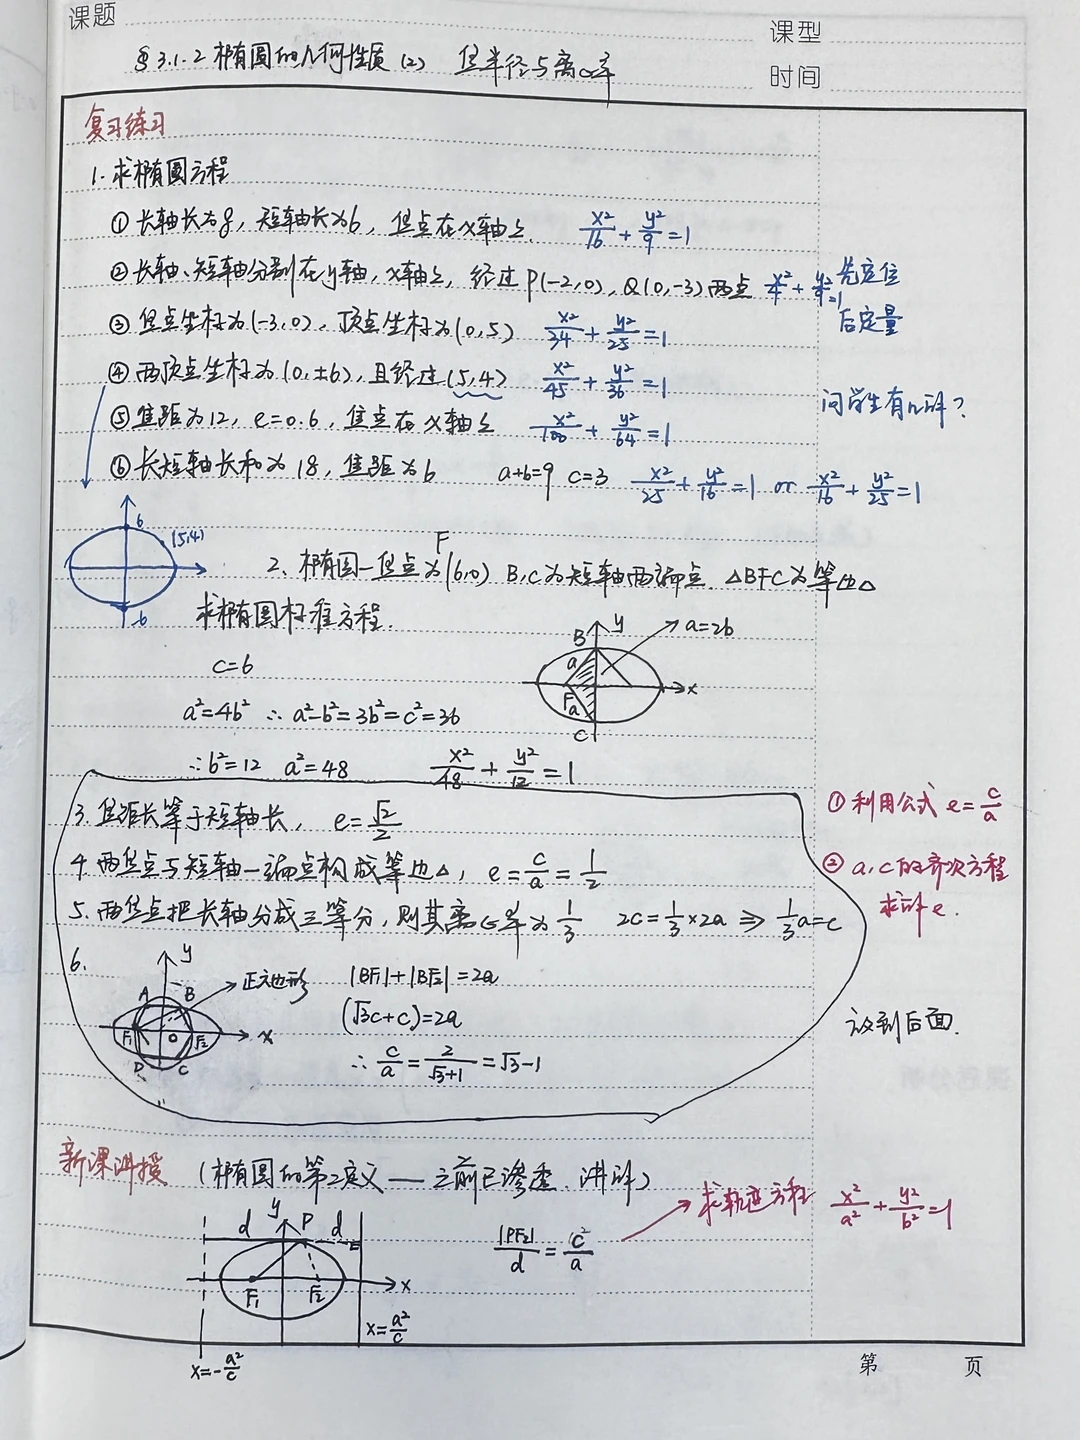 课题
课型
§3.1.2 椭圆的几何性质(2) 焦半径与离心率
时间
复习练习
1. 求椭圆方程
① 长轴长为8, 短轴长为6, 焦点在x轴上. x²/16 + y²/9 = 1
② 长轴、短轴分别在y轴, x轴上, 经过P(-2,0), Q(0,-3)两点 x²/4 + y²/9 = 1
先定位
后定量
③ 焦点坐标为(-3,0), 顶点坐标为(0,5) x²/34 + y²/25 = 1
④ 两顶点坐标为(0,±6), 且经过(5,4) x²/45 + y²/36 = 1
问学生有几解?
⑤ 焦距为12, e=0.6, 焦点在x轴上 x²/100 + y²/64 = 1
⑥ 长短轴长和为18, 焦距为6 a+b=9 c=3 x²/25 + y²/16 = 1 or x²/16 + y²/25 = 1
6
(5,4)
-6
2. 椭圆一焦点为F(6,0) B,C为短轴两端点. △BFC为等边△
求椭圆标准方程.
B y a=2b
a
x
F
a
C
c=6
a²=4b² ∴ a²-b²=3b²=c²=36
∴b²=12 a²=48 x²/48 + y²/12 = 1
3. 焦距长等于短轴长, e=√2/2
① 利用公式 e=c/a
4. 两焦点与短轴一端点构成等边△, e=c/a=1/2
② a,c的齐次方程
求解e.
5. 两焦点把长轴分成三等分, 则其离心率为1/3 2c=1/3×2a ⇒ 1/3a=c
6.
y
A B
正六边形
F₁ O F₂ x
D C
|BF₁|+|BF₂|=2a
(√3c+c)=2a
∴ c/a = 2/(√3+1) = √3-1
放到后面.
新课讲授 (椭圆的第二定义—之前已渗透.讲解)
d y P d
F₁ F₂ x
x=-a²/c
x=a²/c
|PF₂|/d = c/a
求轨迹方程 x²/a² + y²/b² = 1
第 页